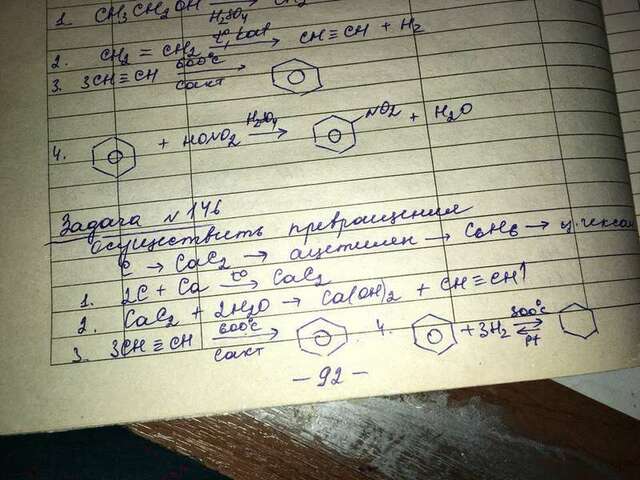 1. CH₃CH₂OH → CH₂
H₂SO₄
2. CH₂ = CH₂ t° kat → CH ≡ CH + H₂
3. 3CH ≡ CH 600°C Cакт →
4. + HONO₂ H₂SO₄ → NO₂ + H₂O
Задача №146
осуществить превращения
C → CaC₂ → ацетилен → C₆H₆ → ц.гексан
1. 2C + Ca t° → CaC₂
2. CaC₂ + 2H₂O → Ca(OH)₂ + CH ≡ CH↑
3. 3CH ≡ CH 600°C Cакт → 4. + 3H₂ 300°C ⇄ Pt
– 92 –